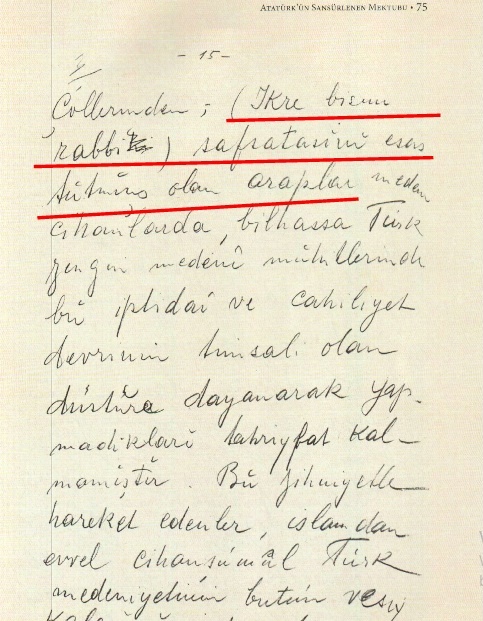 ATATÜRK'ÜN SANSÜRLENEN MEKTUBU • 75
- 15 -
Çöllerinden ; (Ikre bismi
rabbi ) safsatasını esas
tutmuş olan araplar meden
cihanlarda, bilhassa Türk
zengin medenî muhitlerinde
bu iptidaî ve cahiliyet
devrinin timsali olan
düstûre dayanarak yap-
madikları tahriyfat kal-
mamıştır. Bu zihniyetle
hareket edenler, islamdan
evvel cihanşümûl Türk
medeniyetinin bütün vesiy